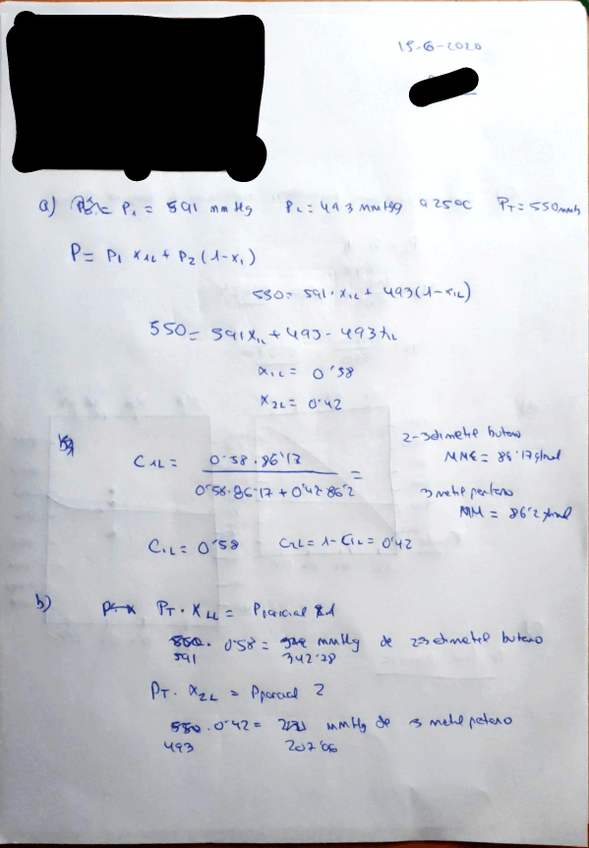 19-6-2020
a) P₁ = 591 mmHg P₂ = 493 mmHg a 25ºC P_T = 550 mmHg
P = P₁ x₁L + P₂ (1-x₁)
550 = 591·x₁L + 493(1-x₁L)
550 = 591x₁L + 493 - 493x₁L
x₁L = 0'58
x₂L = 0'42
C₁L = 0'58·86'17 / 0'58·86'17 + 0'42·86'2 =
2-3dimetil butano
MM = 86'17g/mol
3 metil pentano
MM = 86'2 g/mol
C₁L = 0'58 C₂L = 1-C₁L = 0'42
b) P_T · X₁L = Pparcial 1
550 · 0'58 = mmHg de 2-3dimetil butano
591 342'78
P_T · X₂L = Pparcial 2
550 · 0'42 = 231 mmHg de 3 metil petano
493 207'06